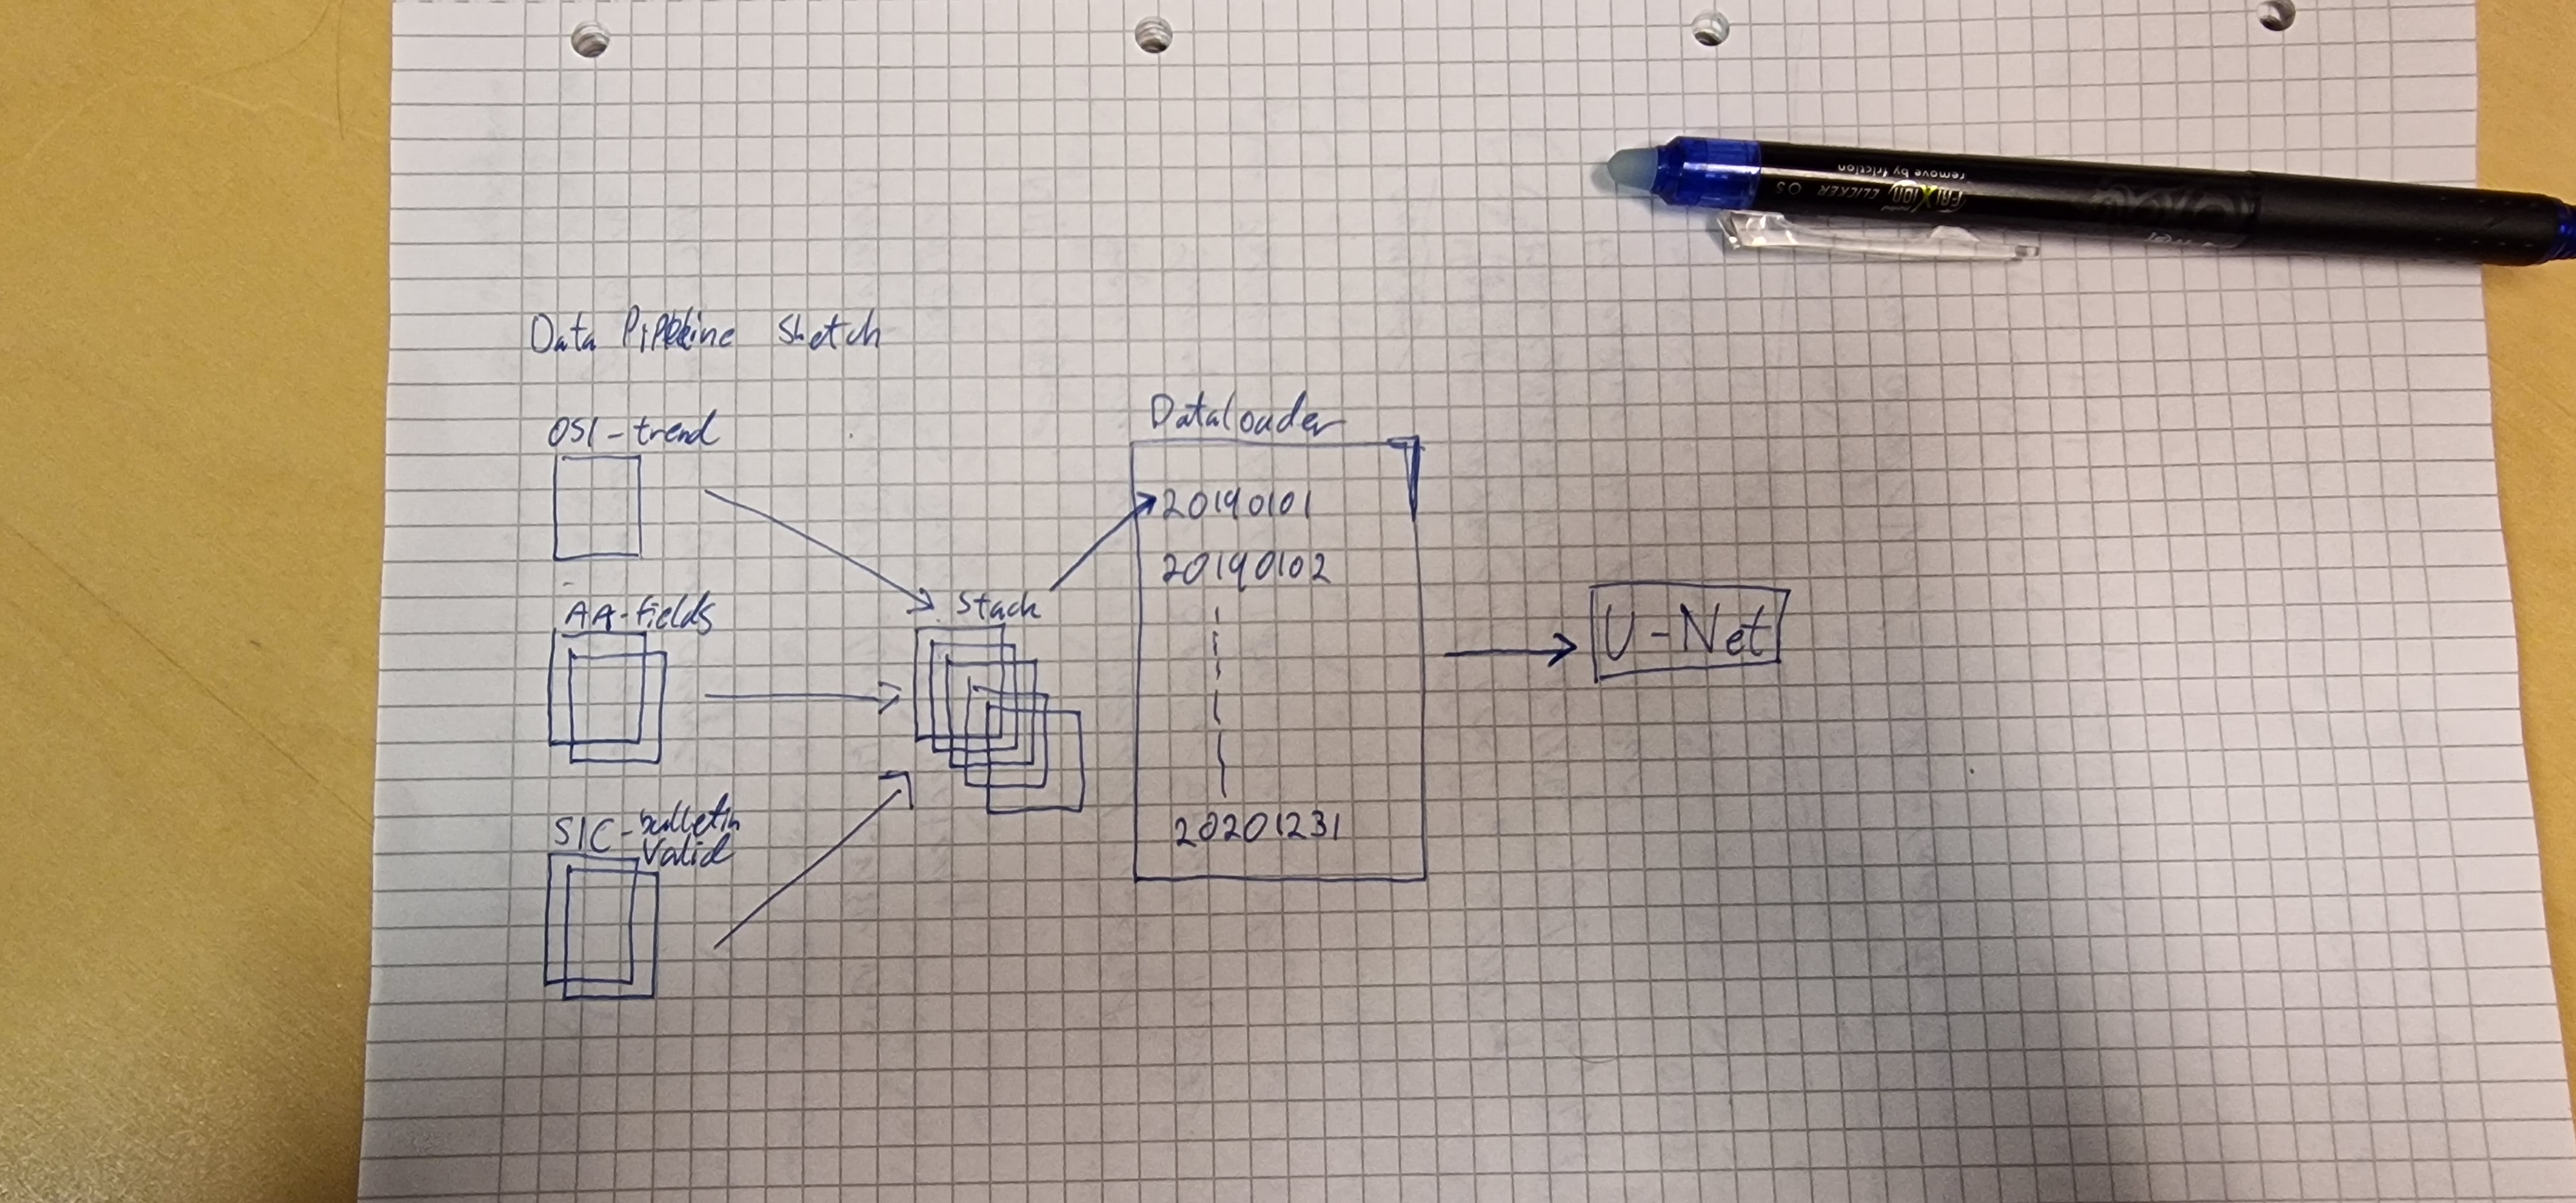 Data Pipeline Sketch
OSI-trend
AA-fields
SIC-bulletin
valid
Stack
Dataloader
20190101
20190102
20201231
U-Net
FRIXION CLICKER 05
remove by friction